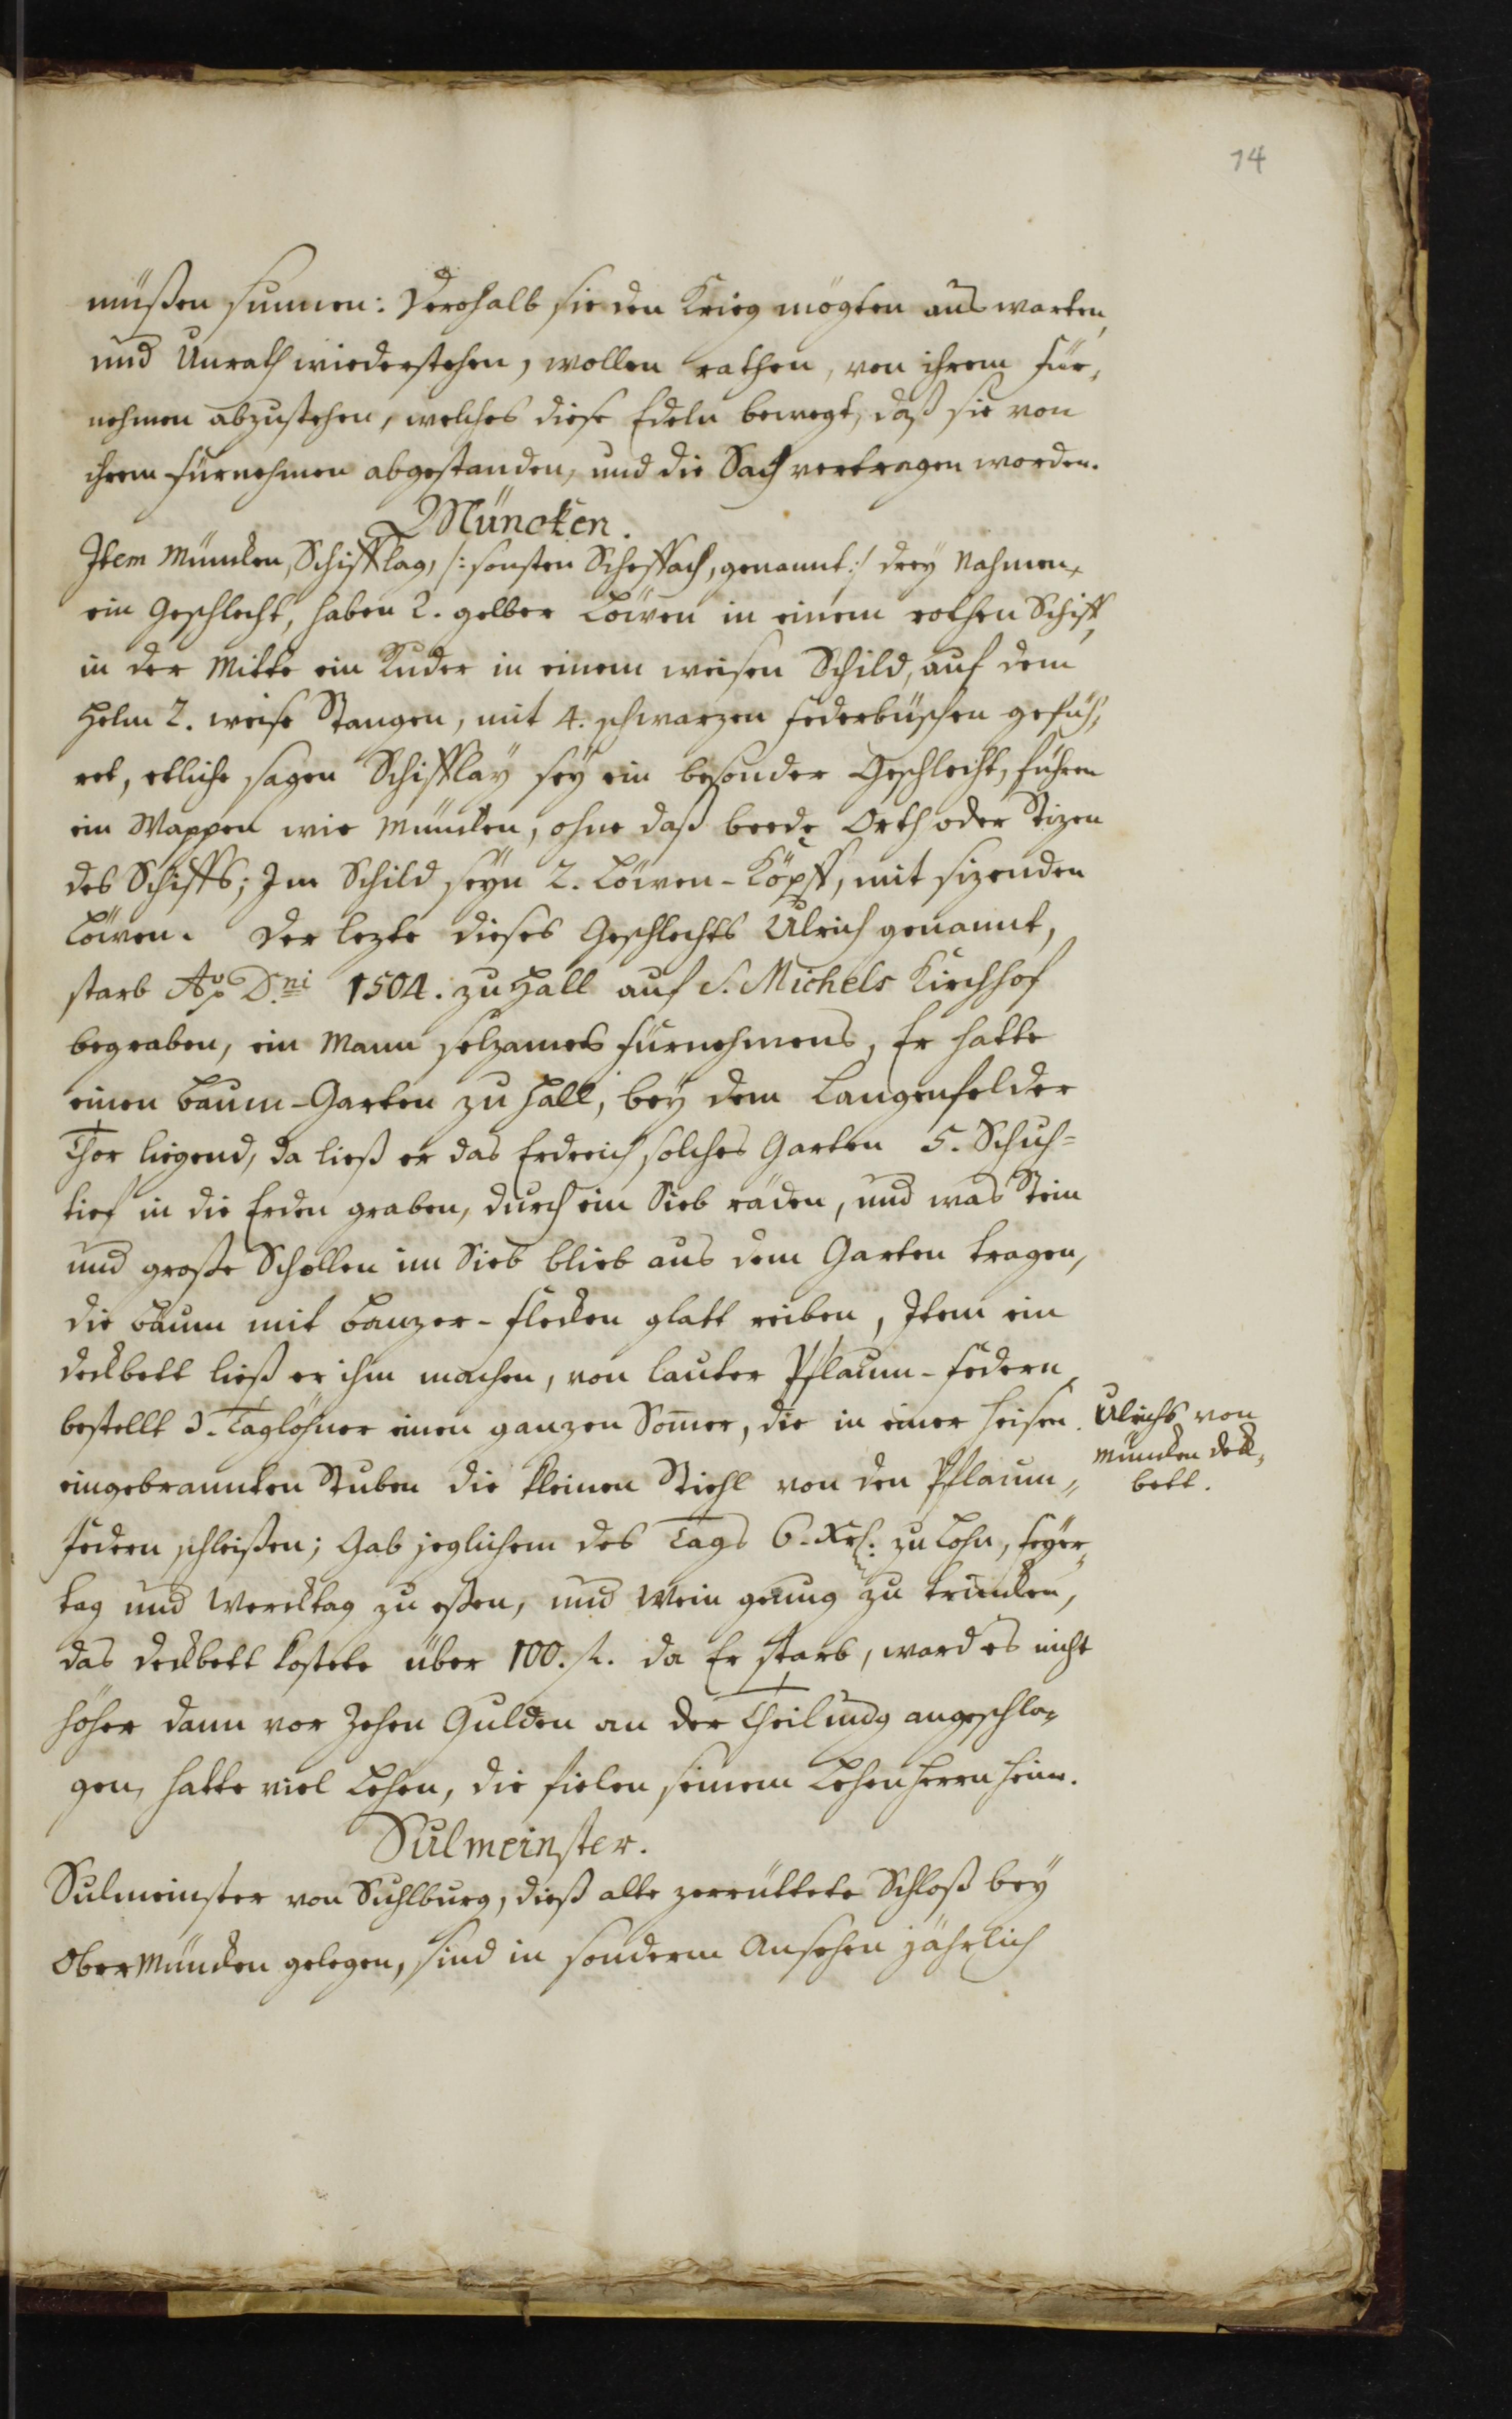 14
müßen summen: Derohalb sie den Krieg mögten aus warten,
und Unrath wiederstehen, wollen rathen, von ihrem für,
nehmen abzustehen, welches diese Edeln bewegt, daß sie von
ihrem fürnehmen abgestanden, und die Sach vertragen worden.
Müncken.
Item Müncken, Schifflag, /: sonsten Scheffach, genannt :/ drey Nahmen,
ein Geschlecht, haben 2. gelber Löwen in einem rothen Schiff,
in der Mitte ein Ruder in einem weisen Schild, auf dem
Helm 2. weise Stangen, mit 4. schwarzen federbüschen gefüh,
ret, etliche sagen Schifflay seÿ ein besonder Geschlecht, führen
ein Wappen wie Müncken, ohne daß beede Orth oder Stizen
des Schiffs; Im Schild seyn 2. Löwen-Köpff, mit sizenden
Löwen. Der lezte dieses Geschlechts Ulrich genannt,
starb Ao Dni 1504. zu Hall auf S. Michels Kirchhof
begraben, ein Mann selzames fürnehmens, Er hatte
einen Baum-Garten zu Hall, beÿ dem Langenfelder
Thor liegend, da ließ er das Erdreich solches Garten 5. Schuh=
tief in die Erden graben, durch ein Sieb räden, und was Stein
und große Schollen im Sieb blieb aus dem Garten tragen,
die Bäum mit Banzer-flecken glatt reiben, Item ein
deckbett ließ er ihm machen, von lauter Pflaum-federn,
bestellt 3. Taglöhner einen ganzen Somer, die in einer heisen
eingebrannten Stuben die kleinen Stiehl von den Pflaum„
federn schleißen; Gab jeglichem des Tags 6. Xr. zu Lohn, feÿer„
tag und Wercktag zu eßen, und Wein genug zu trincken,
das deckbett kostete über 100. fl. da Er starb, ward es nicht
höher dann vor Zehen Gulden an der Theilung angeschla„
gen, hatte viel Lehen, die fielen seinem Lehenherrn heim.
Ulrichs von
Müncken deck„
bett.
Sulmeinster.
Sulmeinster von Suhlburg, dieß alte zerrüttete Schloß beÿ
Ober Müncken gelegen, sind in sonderm Ansehen jährlich